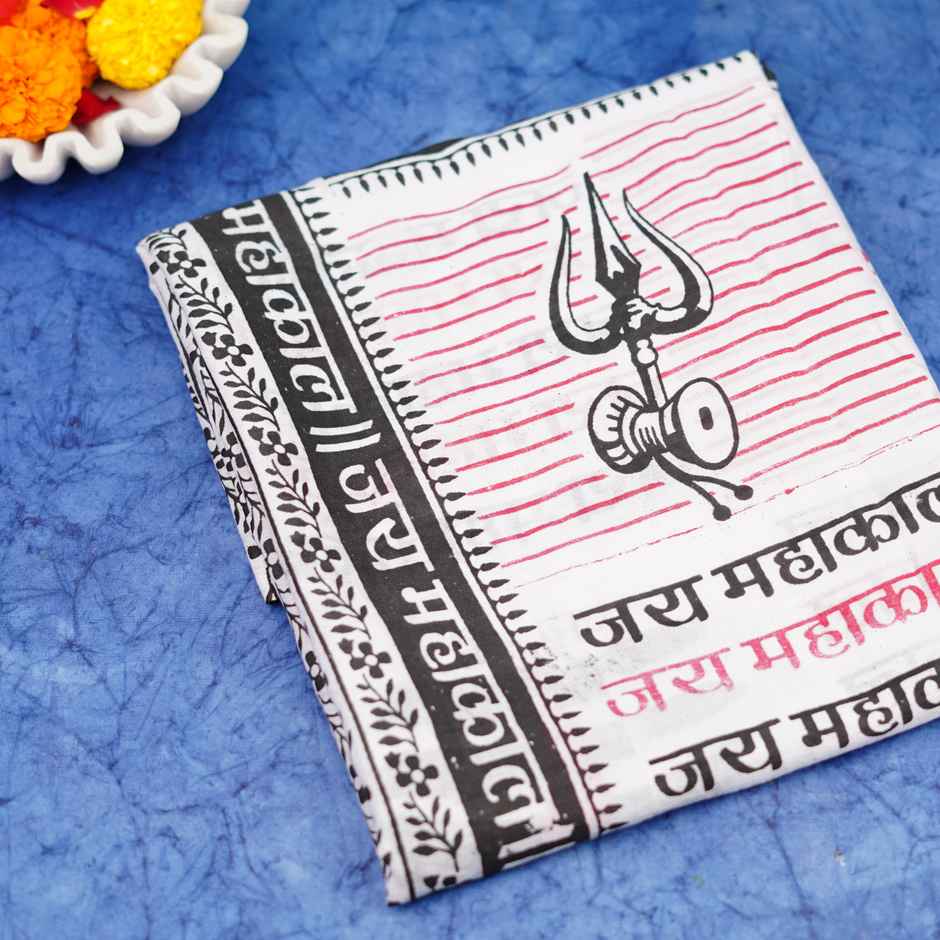 महाकाल ॥ जय महाकाल ॥
जय महाकाल
जय महाका
जय महाका